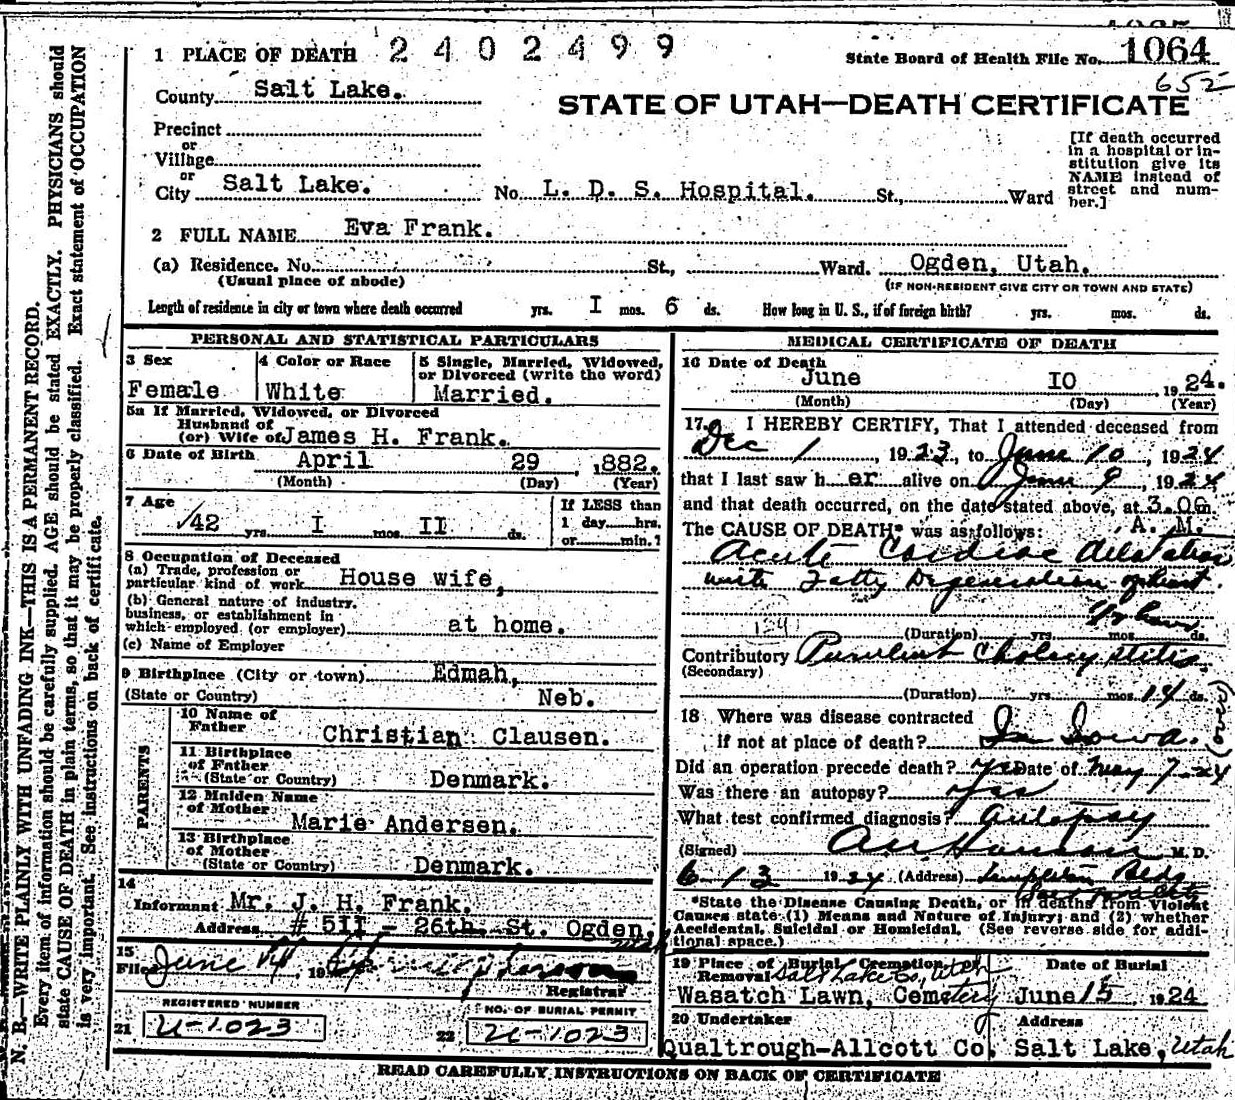 1 PLACE OF DEATH 2402499
State Board of Health File No. 1064
652
County Salt Lake.
STATE OF UTAH—DEATH CERTIFICATE
Precinct
or
Village
or
City Salt Lake. No. L. D. S. Hospital. St., Ward
[If death occurred
in a hospital or in-
stitution give its
NAME instead of
street and num-
ber.]
2 FULL NAME Eva Frank.
(a) Residence. No. St., Ward. Ogden, Utah.
(Usual place of abode) (IF NON-RESIDENT GIVE CITY OR TOWN AND STATE)
Length of residence in city or town where death occurred yrs. I mos. 6 ds. How long in U. S., if of foreign birth? yrs. mos. ds.
PERSONAL AND STATISTICAL PARTICULARS
3 Sex 4 Color or Race 5 Single, Married, Widowed,
or Divorced (write the word)
Female White Married.
5a If Married, Widowed, or Divorced
Husband of
(or) Wife of James H. Frank.
6 Date of Birth April 29, 1882.
(Month) (Day) (Year)
7 Age If LESS than
42 yrs. I mos. II ds. 1 day....hrs.
or....min.?
8 Occupation of Deceased
(a) Trade, profession or
particular kind of work House wife,
(b) General nature of industry,
business, or establishment in
which employed (or employer) at home.
(c) Name of Employer
9 Birthplace (City or town) Edmah,
(State or Country) Neb.
PARENTS
10 Name of
Father Christian Clausen.
11 Birthplace
of Father
(State or Country) Denmark.
12 Maiden Name
of Mother Marie Andersen.
13 Birthplace
of Mother
(State or Country) Denmark.
14
Informant Mr. J. H. Frank.
Address # 5II - 26th. St. Ogden,
Utah
15
Filed June 14 19
Registrar
REGISTERED NUMBER
21 U-1023
NO. OF BURIAL PERMIT
22 U-1023
MEDICAL CERTIFICATE OF DEATH
16 Date of Death
June IO 1924.
(Month) (Day) (Year)
17. I HEREBY CERTIFY, That I attended deceased from
Dec 1, 1923, to June 10, 1924
that I last saw h er alive on June 9, 1924,
and that death occurred, on the date stated above, at 3.00 m.
A. M.
The CAUSE OF DEATH* was as follows:
Acute Cardiac dilatation
with Fatty Degeneration of heart.
(Duration) yrs. mos. ds.
Contributory Purulent Cholecystitis.
(Secondary)
(Duration) yrs. mos. 14 ds.
(over)
18 Where was disease contracted
if not at place of death? In Iowa.
Did an operation precede death? yes Date of May 7-24
Was there an autopsy? Yes
What test confirmed diagnosis? Autopsy
(Signed) M. D.
6-13 1924 (Address) Templeton Bldg
Salt Lake City
*State the Disease Causing Death, or in deaths from Violent
Causes state (1) Means and Nature of Injury; and (2) whether
Accidental, Suicidal or Homicidal. (See reverse side for addi-
tional space.)
19 Place of Burial, Cremation, Date of Burial
Removal Salt Lake Co, Utah
Wasatch Lawn, Cemetery June 15 1924
20 Undertaker Address
Qualtrough-Allcott Co. Salt Lake, Utah
READ CAREFULLY INSTRUCTIONS ON BACK OF CERTIFICATE
N. B.—WRITE PLAINLY WITH UNFADING INK—THIS IS A PERMANENT RECORD.
Every item of information should be carefully supplied. AGE should be stated EXACTLY. PHYSICIANS should
state CAUSE OF DEATH in plain terms, so that it may be properly classified. Exact statement of OCCUPATION
is very important. See instructions on back of certificate.